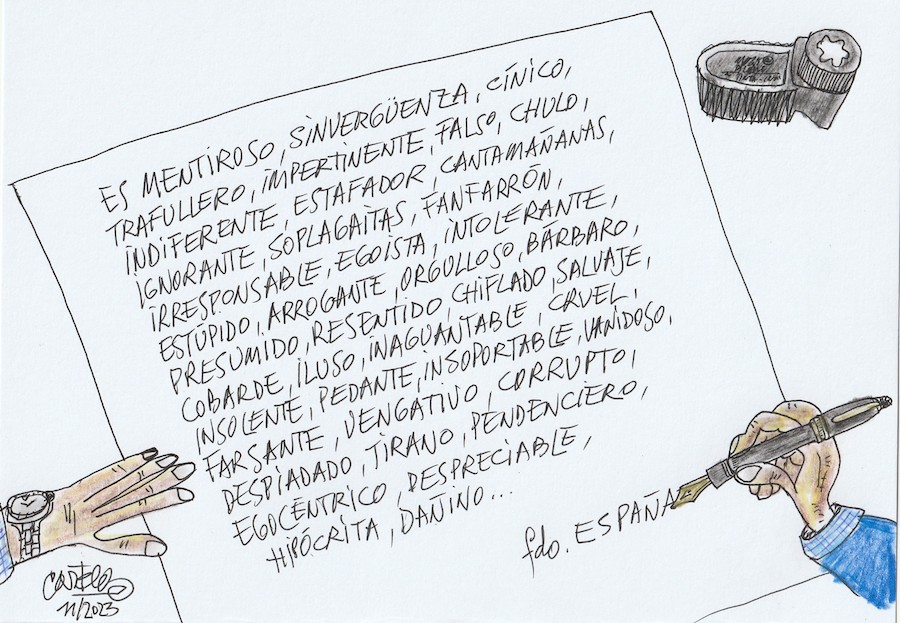 ES MENTIROSO, SINVERGÜENZA, CÍNICO,
TRAFULLERO, IMPERTINENTE, FALSO, CHULO,
INDIFERENTE, ESTAFADOR, CANTAMAÑANAS,
IGNORANTE, SOPLAGAITAS, FANFARRÓN,
IRRESPONSABLE, EGOÍSTA, INTOLERANTE,
ESTÚPIDO, ARROGANTE, ORGULLOSO, BÁRBARO,
PRESUMIDO, RESENTIDO, CHIFLADO, SALVAJE,
COBARDE, ILUSO, INAGUANTABLE, CRUEL,
INSOLENTE, PEDANTE, INSOPORTABLE, VANIDOSO,
FARSANTE, VENGATIVO, CORRUPTO,
DESPIADADO, TIRANO, PENDENCIERO,
EGOCÉNTRICO, DESPRECIABLE,
HIPÓCRITA, DAÑINO...
fdo. ESPAÑA
11/2023